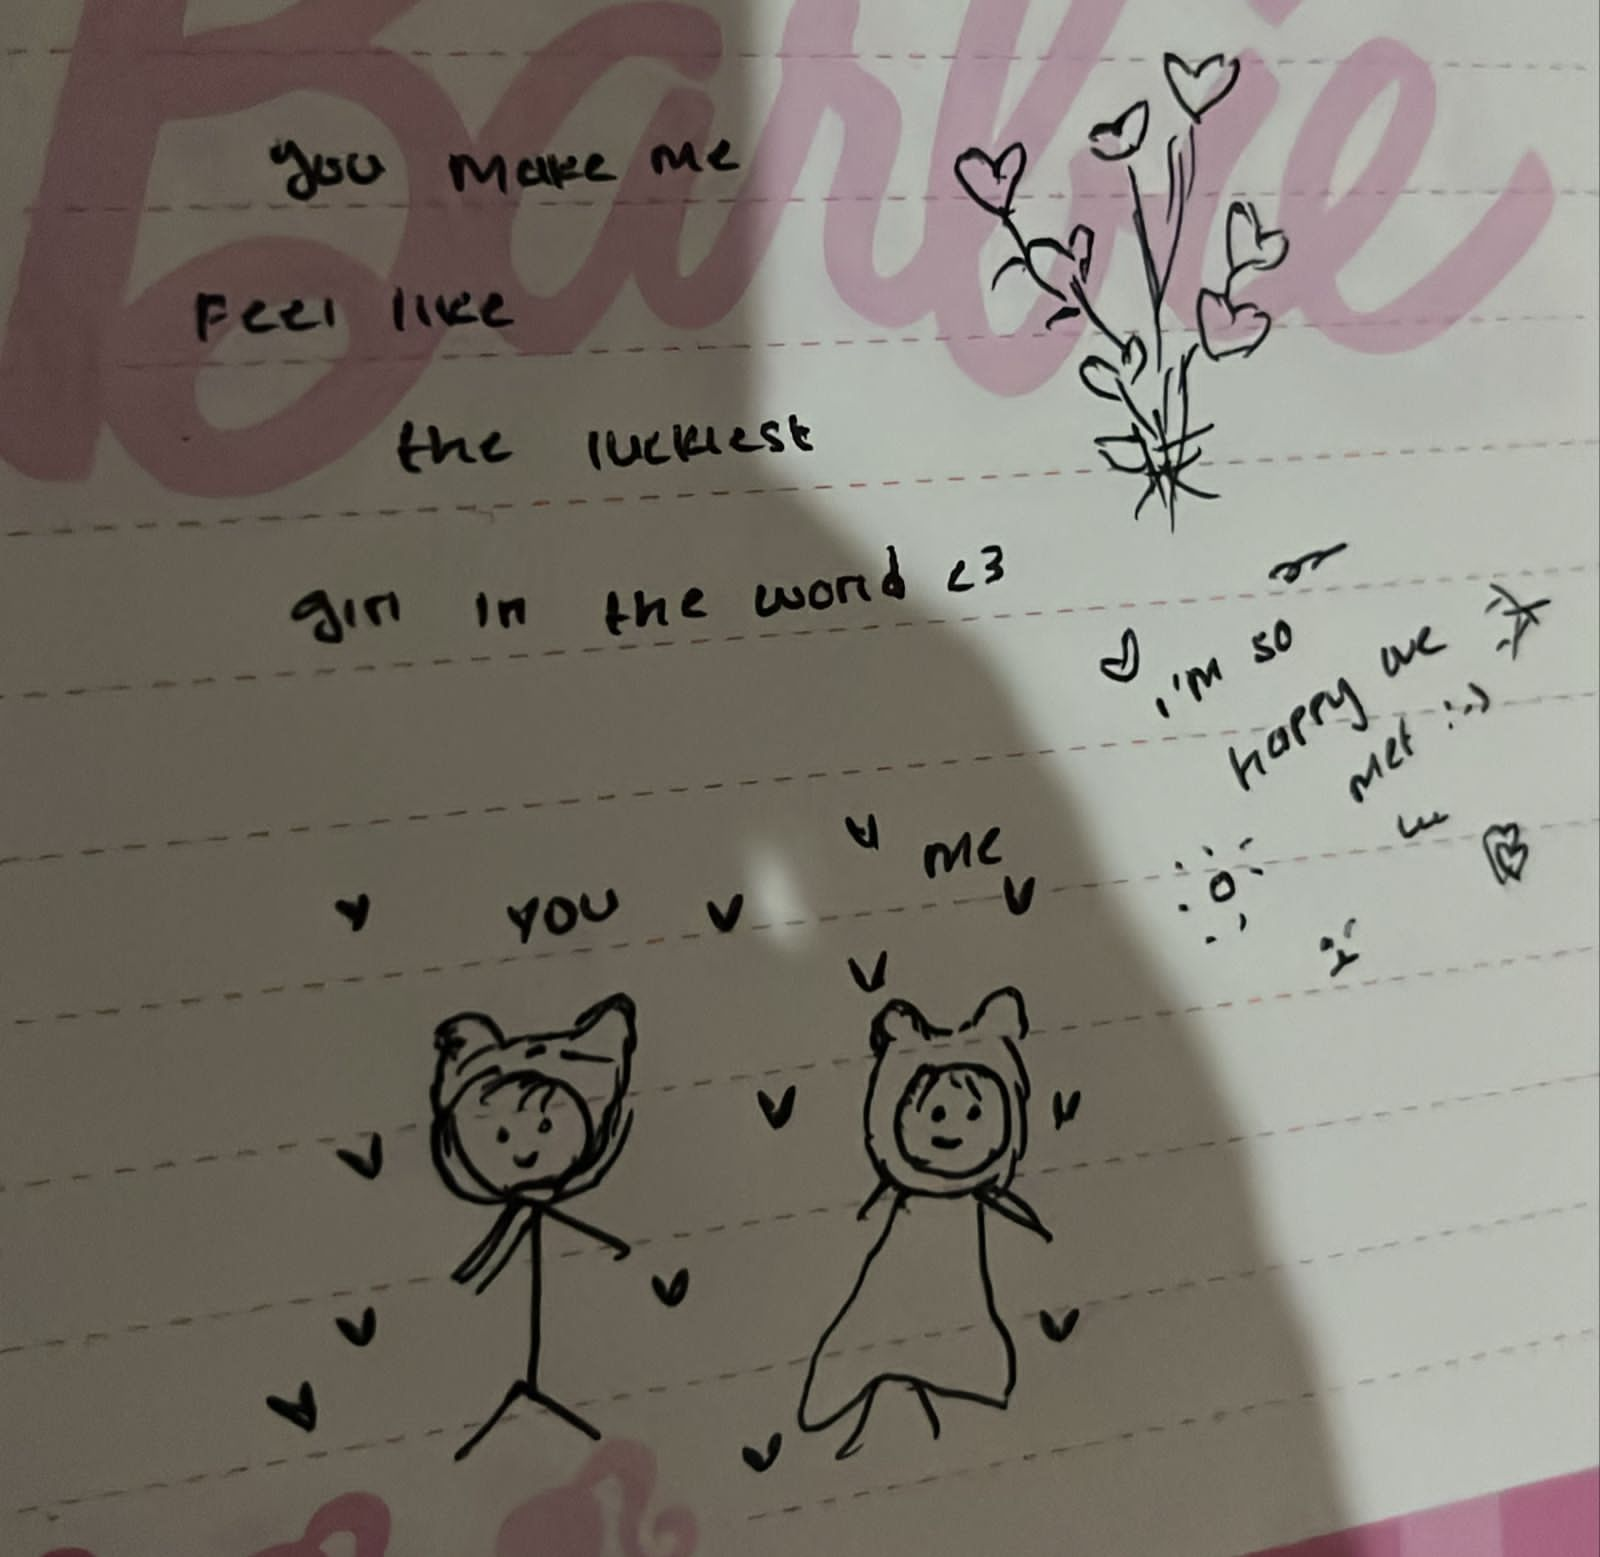 Barbie
you make me
Feel like
the luckiest
girl in the world <3
i'm so
happy we
met :-)
YOU
me